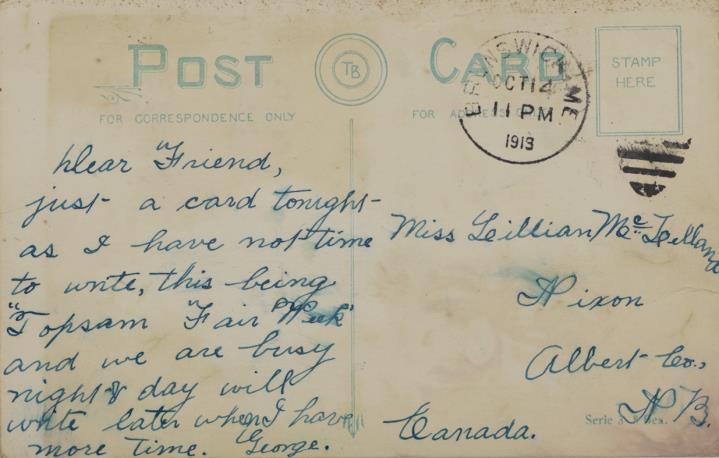 POST CARD
TB
FOR CORRESPONDENCE ONLY
FOR ADDRESS ONLY
STAMP
HERE
BRUNSWICK, ME
OCT 14
11 PM
1913
Dear Friend,
just a card tonight
as I have not time
to write, this being
"Topsam Fair Week"
and we are busy
night & day will
write later when I have
more time. George.
Miss Leillian McLelland
Nixon
Albert Co.,
N B.
Canada.
Serie